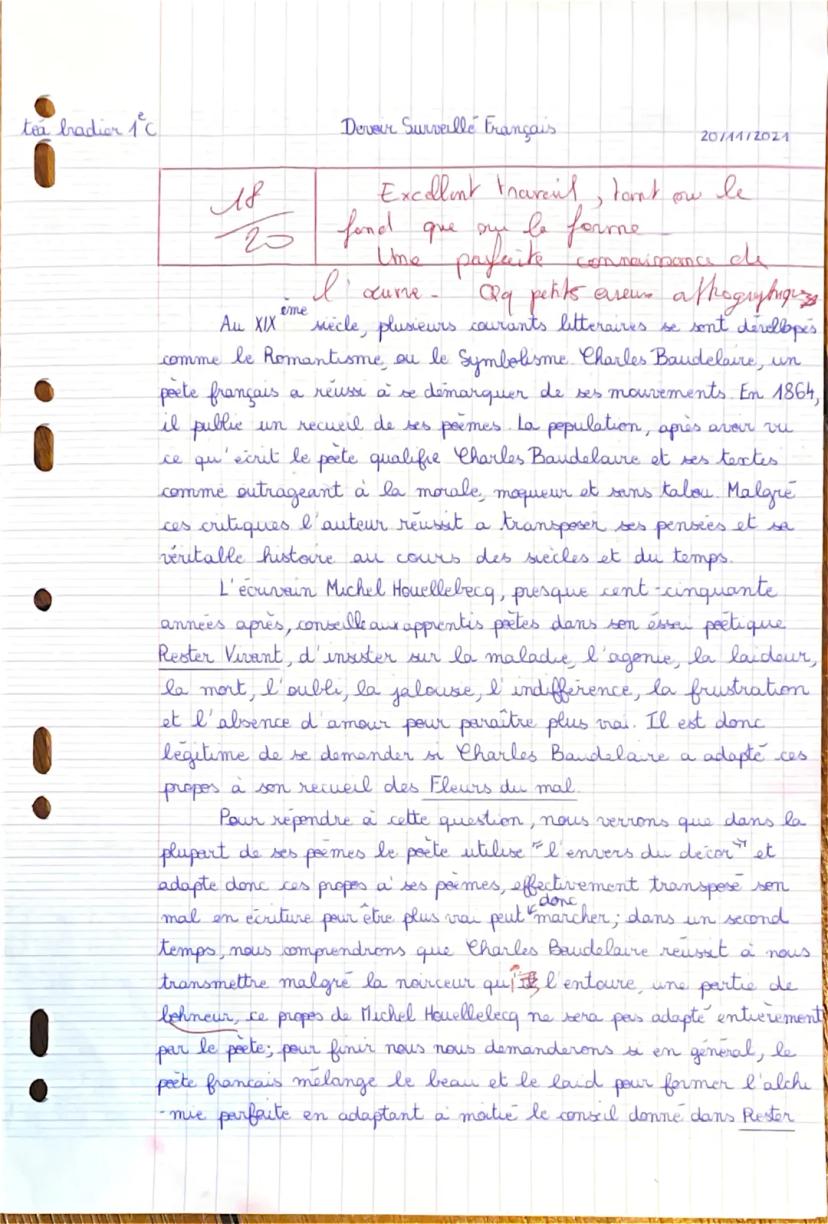 téa bradier 1eC
Devoir Surveillé Français
20/11/2021
18/20
Excellent travail, tant sur le
fond que sur la forme
Une parfaite connaissance de
l'œuvre - Qq petits erreurs othographiques
Au XIXème siècle, plusieurs courants litteraires se sont dévellopés
comme le Romantisme, ou le Symbolisme. Charles Baudelaire, un
poète français a réussi à se démarquer de ses mouvements. En 1864,
il publie un recueil de ses poèmes. La population, après avoir vu
ce qu'écrit le poète qualifie Charles Baudelaire et ses textes
comme outrageant à la morale, moqueur et sans talou. Malgré
ces critiques l'auteur réussit a transposer ses pensées et sa
véritable histoire au cours des siècles et du temps.
L'écrivain Michel Houellebecq, presque cent-cinquante
années après, conseille aux apprentis poètes dans son éssai poétique
Rester Vivant, d'insister sur la maladie, l'agonie, la laideur,
la mort, l'oubli, la jalousie, l'indifférence, la frustration
et l'absence d'amour pour paraître plus vrai. Il est donc
légitime de se demander si Charles Baudelaire a adapté ces
propos à son recueil des Fleurs du mal.
Pour répondre à cette question, nous verrons que dans la
plupart de ses poèmes le poète utilise "l'envers du décor" et
adapte donc ces propos à ses poèmes, effectivement transposé son
mal en écriture pour être plus vrai peut donc marcher; dans un second
temps, nous comprendrons que Charles Baudelaire réussit à nous
transmettre malgré la noirceur qui l'entoure, une partie de
bohneur, ce propos de Michel Houellebecq ne sera pas adapté entièrement
par le poète; pour finir nous nous demanderons si en général, le
poète francais mélange le beau et le laid pour former l'alchi
-mie parfaite en adaptant à moitié le conseil donné dans Rester